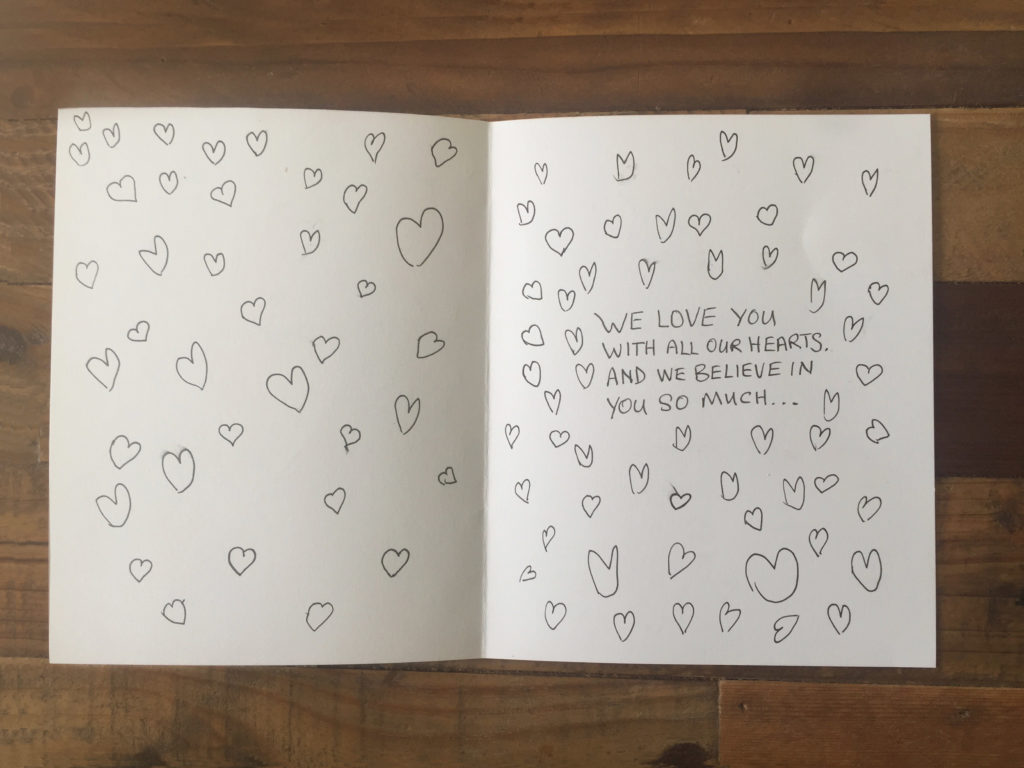 WE LOVE YOU
WITH ALL OUR HEARTS.
AND WE BELIEVE IN
YOU SO MUCH...